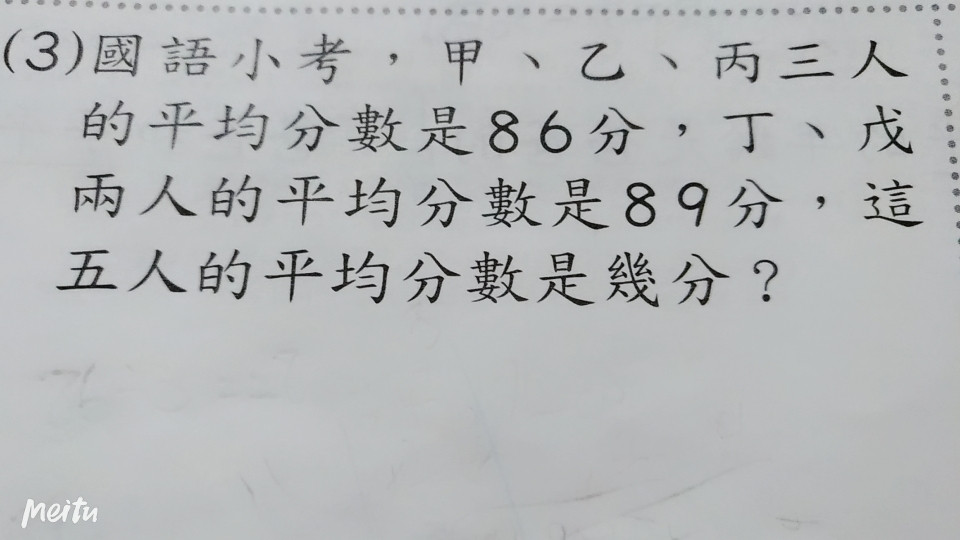 (3)國語小考，甲、乙、丙三人
的平均分數是86分，丁、戊
兩人的平均分數是89分，這
五人的平均分數是幾分？
Meitu